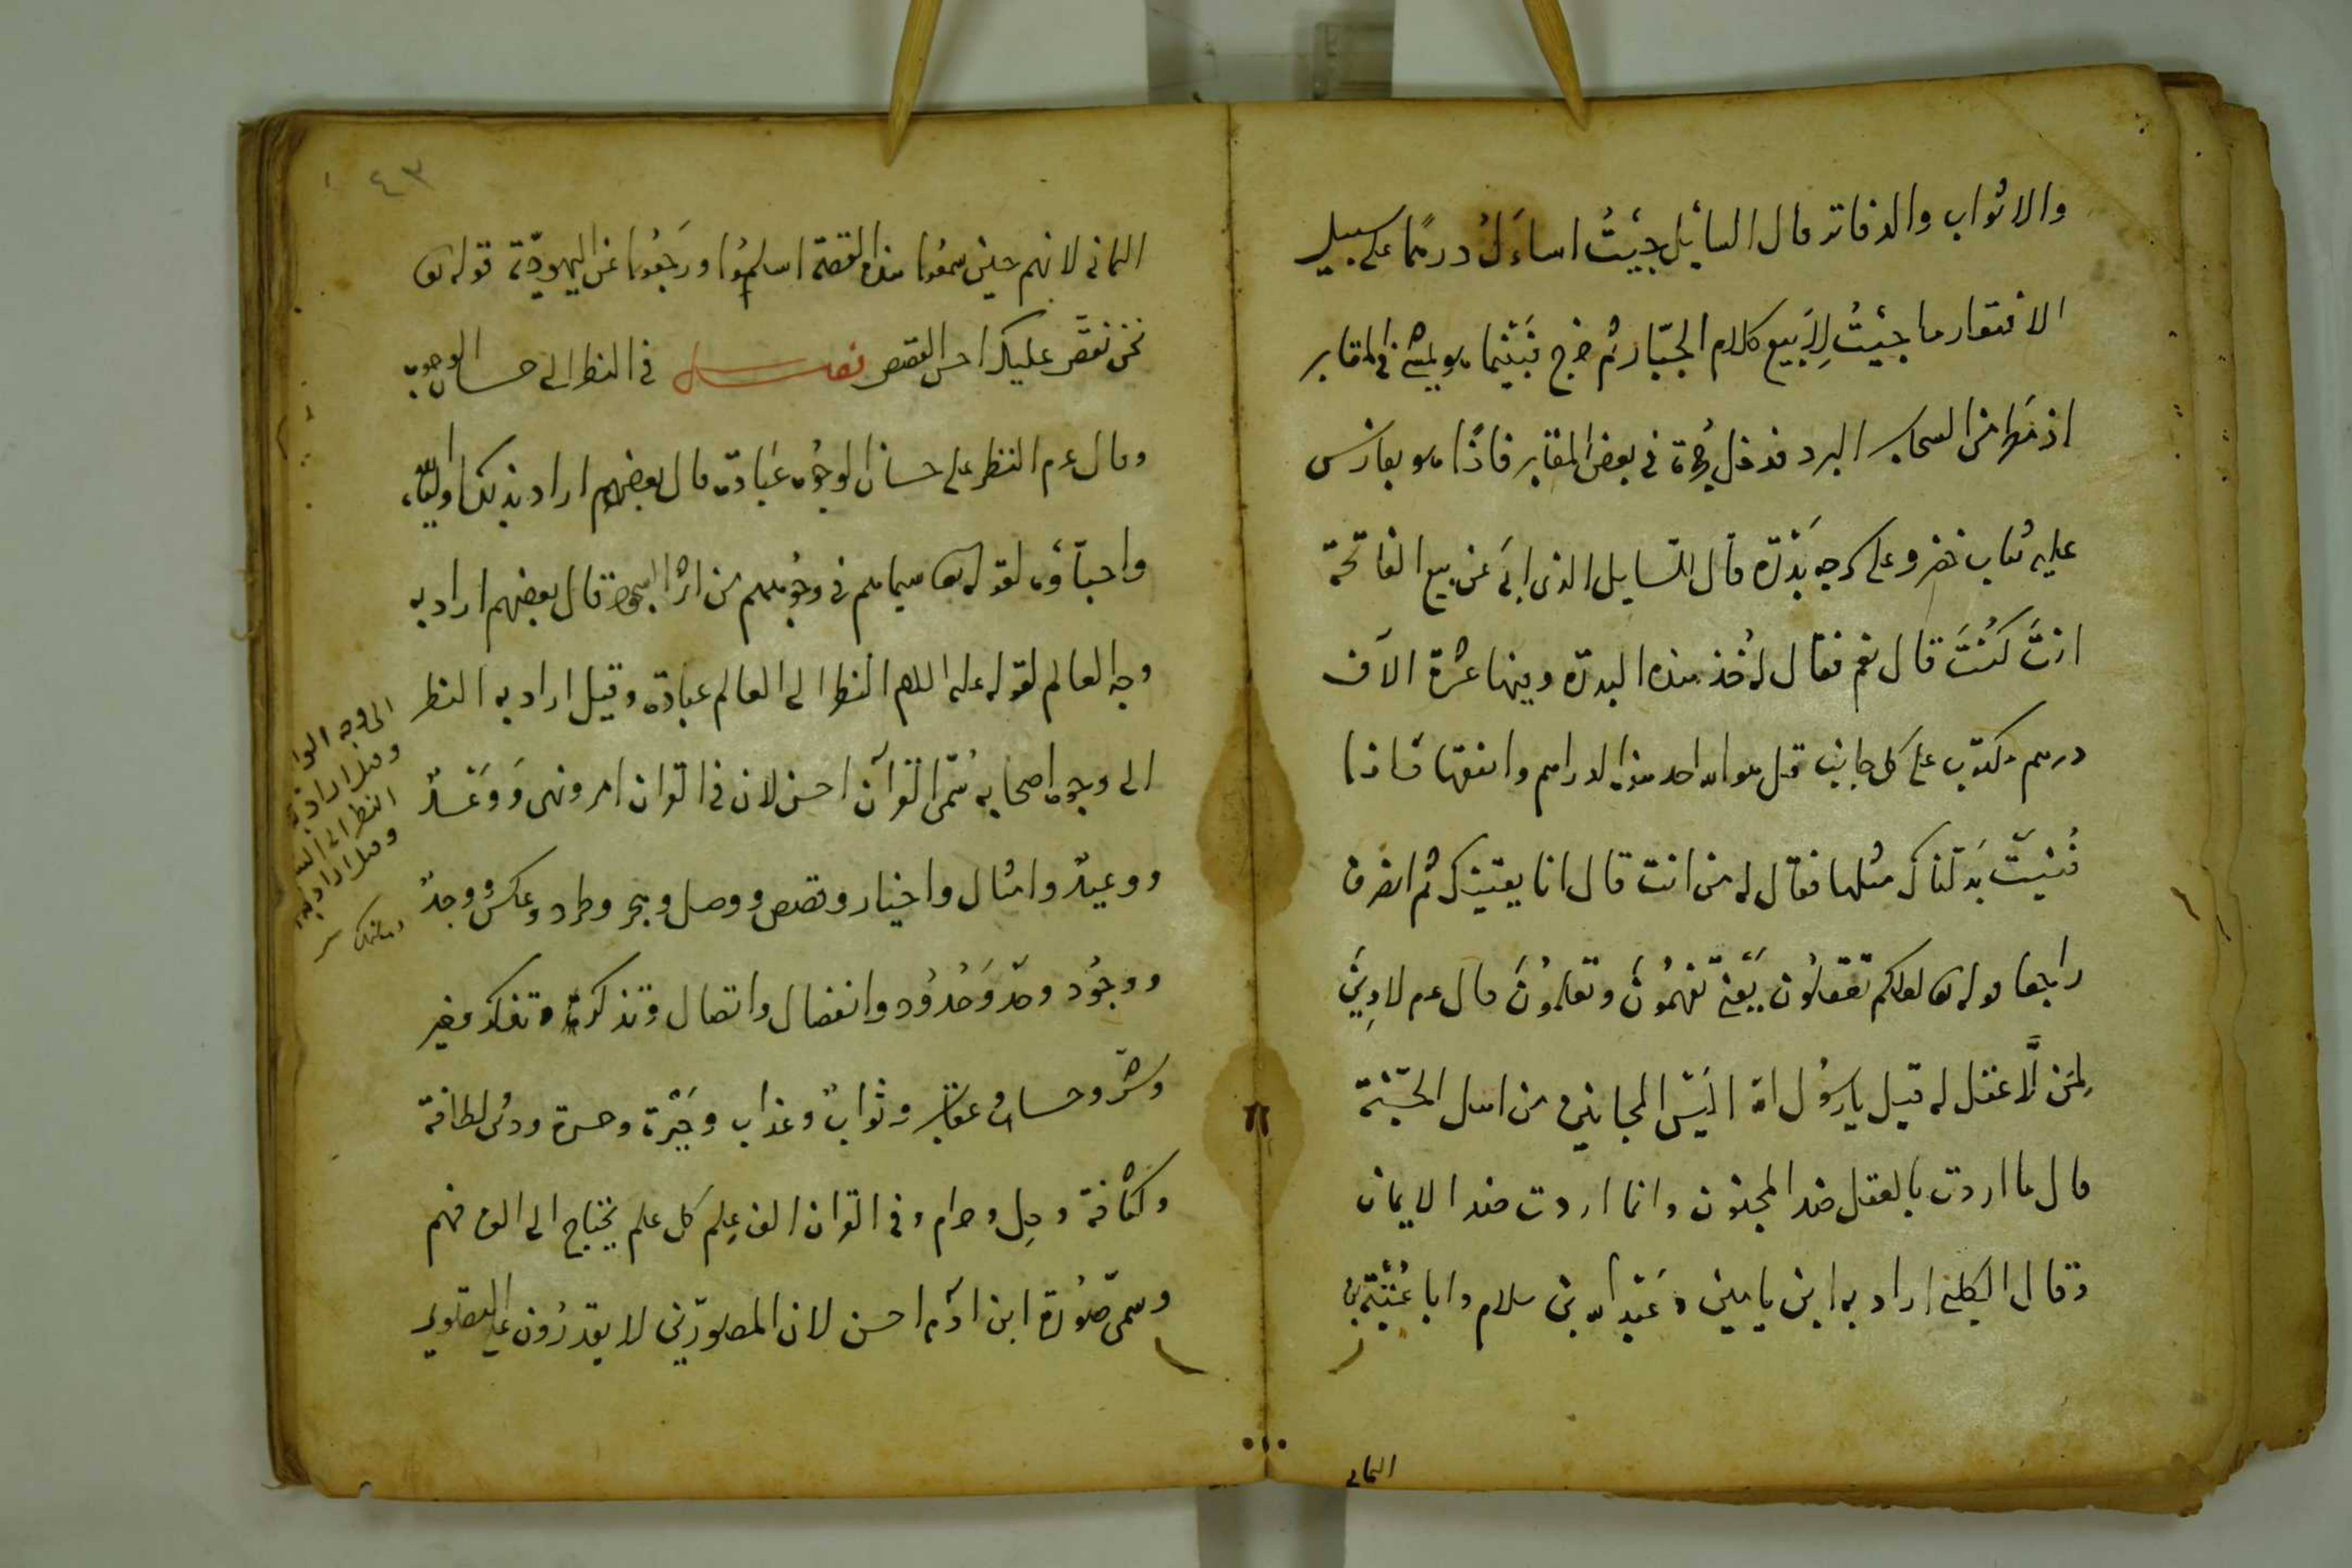 والاثواب والدفاتر قال السايل جيت اساءل درهما على سبيل
الافتقار ما جيت لابيع كلام الجبار ثم خرج فبينما هو يمشى فى المقابر
اذ مطر من السحاب البرد فدخل حجرة فى بعض المقابر فاذا هو بفارس
عليه ثياب خضر وعلى سرجه بدرة قال للسايل الذى ابى عن بيع الفاتحة
انت كنت قال نعم فقال له خذ هذه البدرة وفيها عشرة الاف
درهم مكتوب على كل جانب قل هو الله احد هذه الدراهم وانفقها فاذا
فنيت بدلناك مثلها فقال له من انت قال انا يقينك ثم انصرف
راجعا قوله تعا لعلكم تعقلون يعنى تفهمون وتعلمون قال عم لا دين
لمن لا عقل له قيل يا رسول الله اليس المجانين من اهل الجنة
قال ما اردت بالعقل ضد المجنون وانما اردت ضد الايمان
وقال الكلبى اراد به ابن يامين وعبد الله بن سلام وابا عتبة بن
اليمانى
٤٣
اليمانى لانهم حين سمعوا هذه القصة اسلموا ورجعوا عن اليهودية قوله تعا
نحن نقص عليك احسن القصص فصل فى النظر الى حسان الوجوه
وقال عم النظر على حسان الوجوه عبادة قال بعضهم اراد بذلك اولياء
واحباؤه لقوله تعا سيماهم فى وجوههم من اثر السجود قال بعضهم اراد به
وجه العالم لقوله عليه السلام النظر الى العالم عبادة وقيل اراد به النظر
الى وجوه اصحابه سمى القرآن احسن لان فى القران امر ونهى ووعد
ووعيد وامثال واخبار وقصص ووصل وهجر وطرد وعكس ووجد
ووجود وحد وحدود وانفصال واتصال وتذكرة وتفكر وخير
وشر وحساب وعقاب وثواب وعذاب وحيرة وحسرة ودنى لطافة
وكثافة وحل وحرام وفى القران الف علم كل علم يحتاج الى الف فهم
وسمى صورة ابن آدم احسن لان المصورين لا يقدرون على التصوير
الى وجه
وقيل اراد به
النظر الى
وقيل اراد به